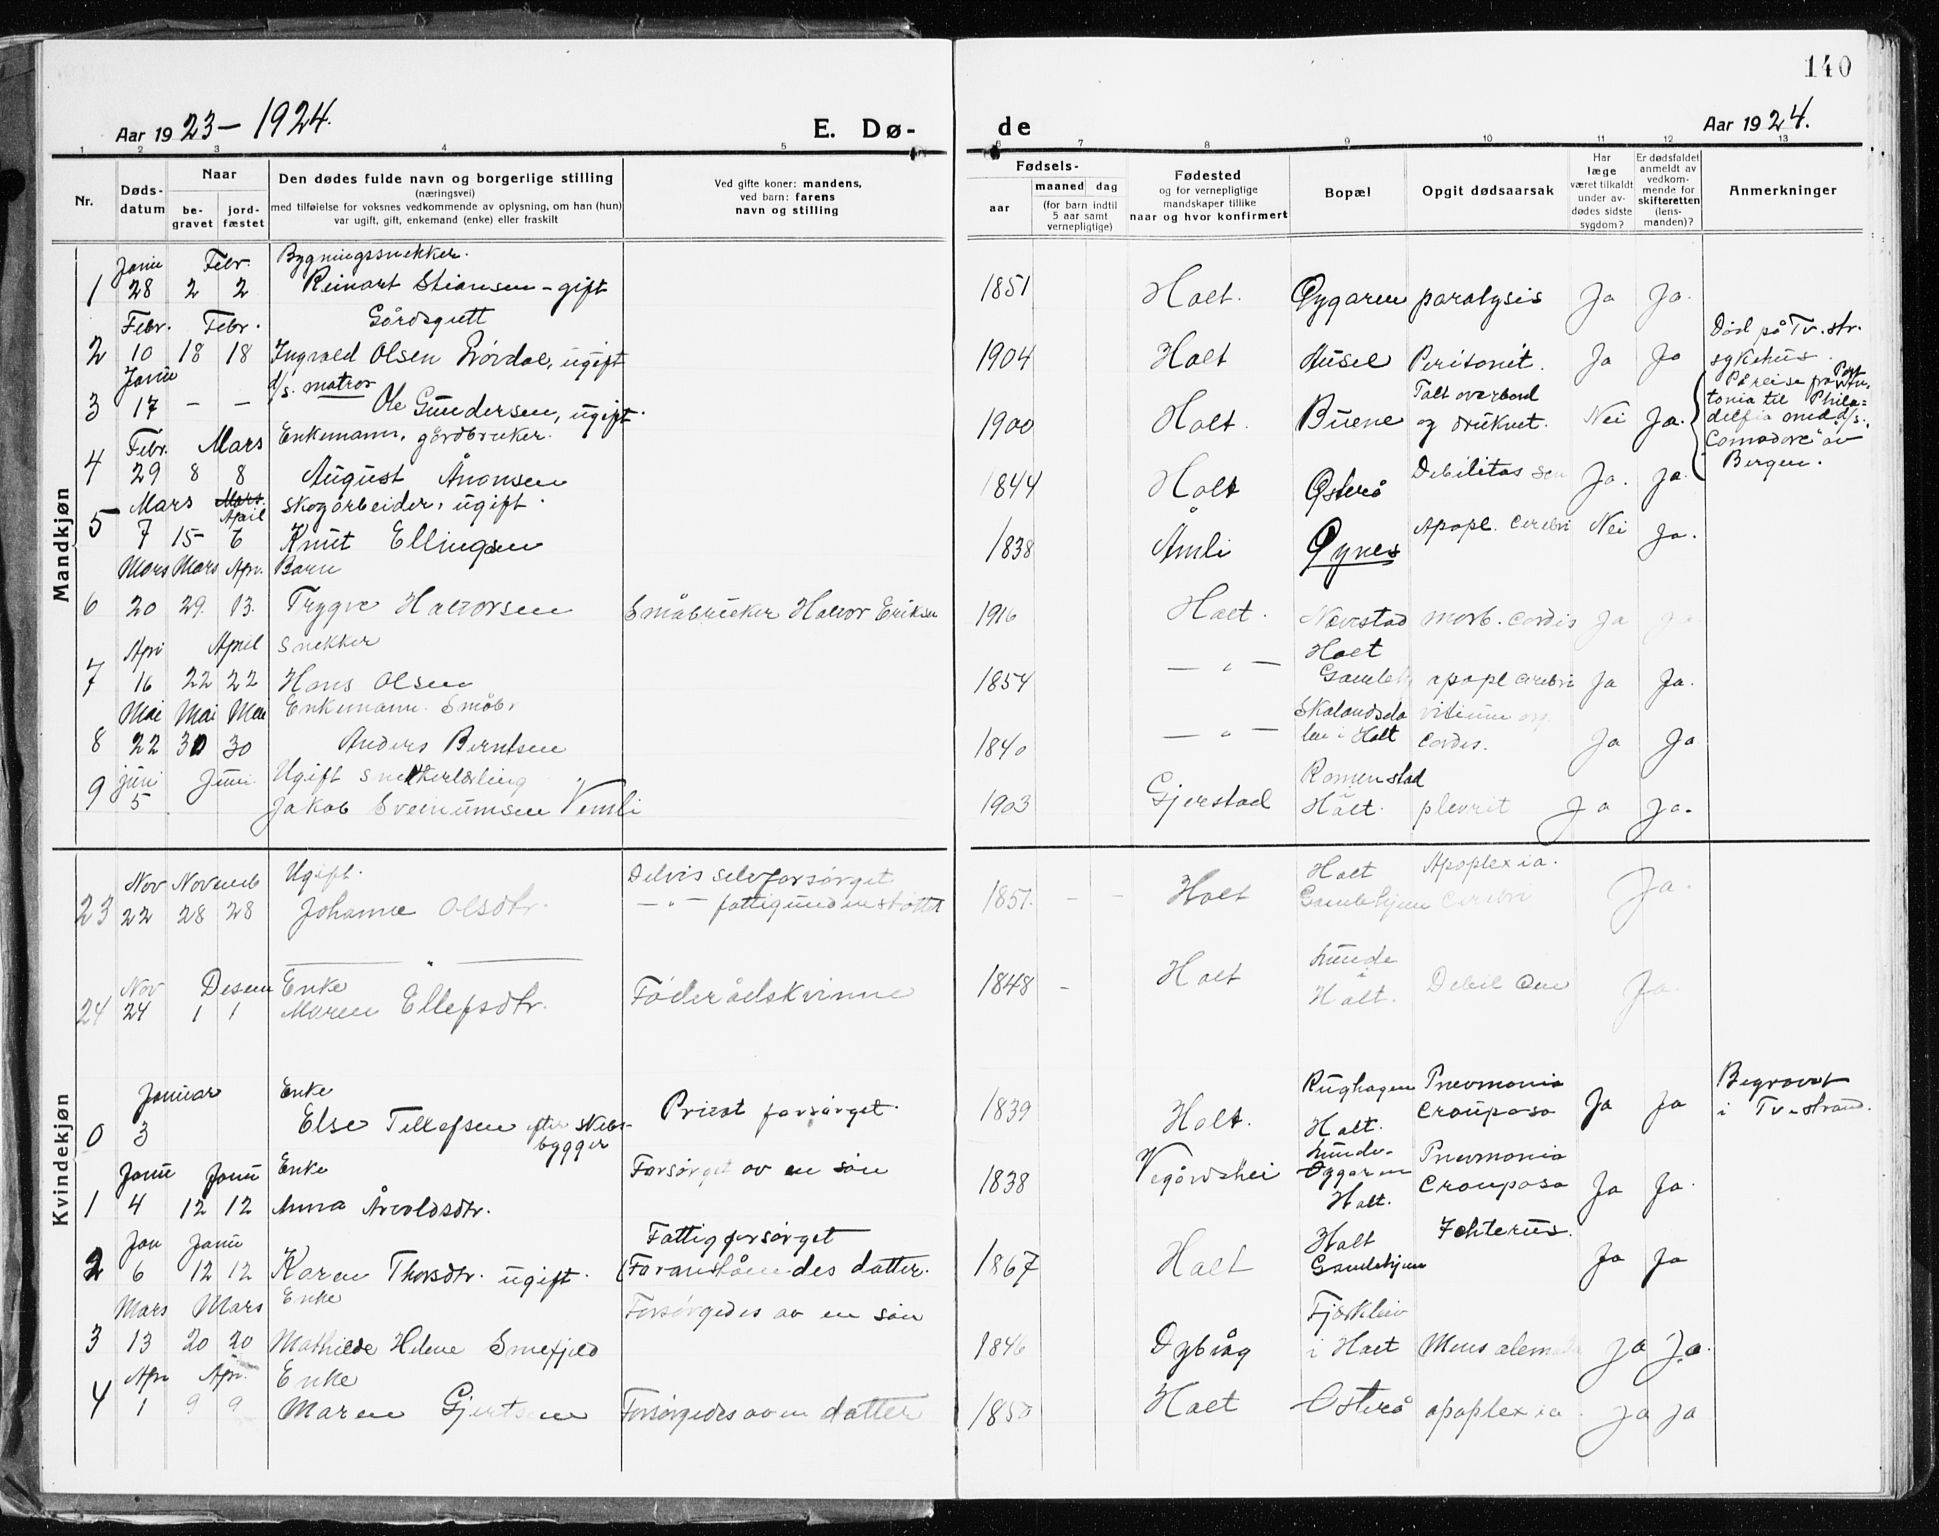 140
Aar 1923 – 1924.
E. Dø-
de
Aar 1924.
1 2 3 4 5 6 7 8 9 10 11 12 13
Nr.
Døds-
datum
Naar
be-
gravet
jord-
fæstet
Den dødes fulde navn og borgerlige stilling
(næringsvei)
med tilføielse for voksnes vedkommende av oplysning, om han (hun)
var ugift, gift, enkemand (enke) eller fraskilt
Ved gifte koner: mandens,
ved barn: farens
navn og stilling
Fødsels-
aar
maaned
dag
(for barn indtil
5 aar samt
vernepligtige)
Fødested
og for vernepligtige
mandskaper tillike
naar og hvor konfirmert
Bopæl
Opgit dødsaarsak
Har
læge
været tilkaldt
under av-
dødes sidste
sygdom?
Er dødsfaldet
anmeldt av
vedkom-
mende for
skifteretten
(lens-
manden)?
Anmerkninger
Mandkjøn
Janu Febr. Bygningssnekker.
1 28 2 2 Reinart Stiansen – gift 1851 Holt. Øygaren paralysis Ja Ja.
Febr. Febr. Gårdsgutt
2 10 18 18 Ingvald Olsen Lövdal, ugift 1904 Holt Husel Peritonit. Ja Ja
Død på Tv.str.
sykehus.
Janu d/s. matros
3 17 – – Ole Gundersen, ugift. 1900 Holt. Buene Falt overbord
og druknet. Nei Ja.
På reise fra Port
tonia til Phila-
delfia med d/s.
"Comodore" av
Bergen.
Febr. Mars Enkemann, gårdbruker.
4 29 8 8 August Ånonsen 1844 Holt Østerå Debilitas sen Ja. Ja.
Mars Mars April skogarbeider, ugift.
5 7 15 6 Knut Ellingsen 1838 Åmli Øynes Apopl. cerebri Nei Ja.
Mars Mars Apr. Barn
6 20 29. 13. Trygve Halvorsen Småbruker Halvor Eriksen 1916 Holt. Nævestad morb. cordis Ja Ja
Apr April Snekker
7 16 22 22 Hans Olsen 1854 – " – Holt
Gamlehj apopl cerebri Ja Ja.
Mai Mai Mai Enkemann. Småbr
8 22 30 30 Anders Berntsen 1840 – " – Skalandsda
len i Holt vitium org
cordis. Ja Ja
juni Juni. Ugift snekkerlærling
9 5 Jakob Sveinumsen Vemli 1903 Gjerstad Romenstad
Holt. plevrit Ja Ja.
Kvindekjøn
Nov Novemb Ugift. Delvis selvforsørget
23 22 28 28 Johanne Olsdtr. – " – fattigunderstøttet 1851. – – Holt Holt
Gamlehjem Apoplexia.
cerebri Ja.
– " –
Nov Desem Enke
24 24 1 1 Maren Ellefsdtr. Føderådskvinne 1848 – Holt Lunde
i
Holt. Debil sen Ja.
Januar Enke
0 3 Else Tellefsen efter skibs-
bygger Privat forsørget. 1839 Holt. Rughagen
Holt. Pnevmonia
Crouposa Ja Ja
Begravet
i Tv.strand.
Janu Janu Enke
1 4 12 12 Anna Årvoldsdtr. Forsørget av en søn 1838 Vegårdshei Lunde-
Øygaren
Holt. Pnevmonia
Crouposa Ja Ja.
Jan Janu Fattigforsørget
2 6 12 12 Karen Thorsdtr. ugift. (Foranståendes datter. 1867 Holt Holt
Gamlehjem Ichterus. Ja Ja
Mars Mars Enke
3 13 20 20 Mathilde Helene Smefjeld Forsørgedes av en søn 1846 Dybvåg Fjærkleiv
i Holt Ja Ja.
Apr Apr. Enke
4 1 9 9 Maren Gjertsen Forsørgedes av en datter 1850 Holt Østerå apoplexia. Ja Ja